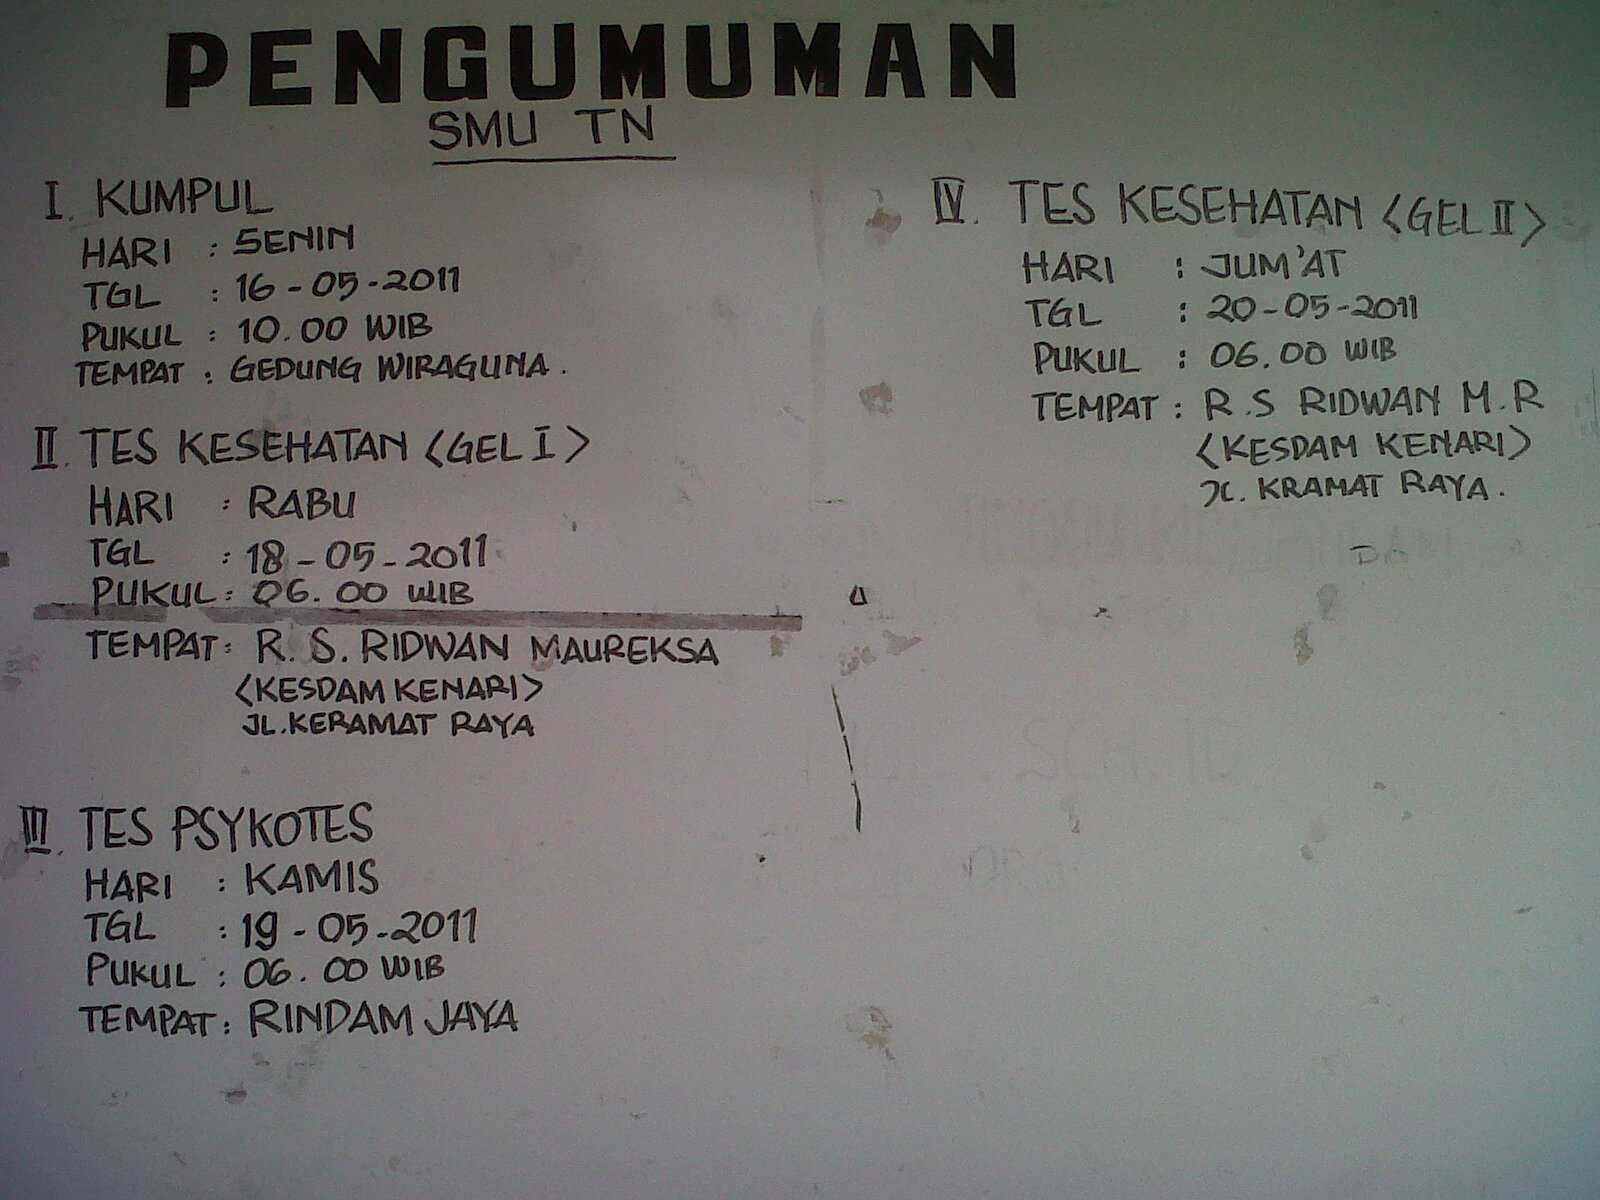 PENGUMUMAN
SMU TN
I. KUMPUL
HARI : SENIN
TGL : 16-05-2011
PUKUL : 10.00 WIB
TEMPAT : GEDUNG WIRAGUNA.
II. TES KESEHATAN <GEL I>
HARI : RABU
TGL : 18-05-2011
PUKUL : 06.00 WIB
TEMPAT : R. S. RIDWAN MAUREKSA
<KESDAM KENARI>
JL.KERAMAT RAYA
III. TES PSYKOTES
HARI : KAMIS
TGL : 19-05-2011
PUKUL : 06.00 WIB
TEMPAT : RINDAM JAYA
IV. TES KESEHATAN <GEL II>
HARI : JUM'AT
TGL : 20-05-2011
PUKUL : 06.00 WIB
TEMPAT : R.S RIDWAN M.R
<KESDAM KENARI>
JL. KRAMAT RAYA.